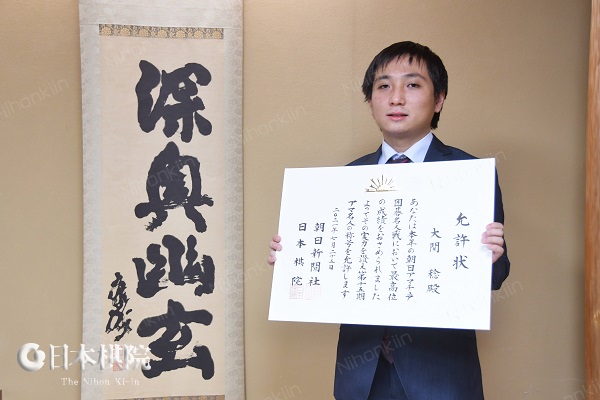 深奥幽玄
允許状
大関 稔殿
あなたは本年の朝日アマチュア
囲碁名人戦において最高位
の成績をおさめられました
よってその実力を讃え第十五期
アマ名人の称号を允許します
二〇二一年七月二十五日
朝日新聞社
日本棋院
日本棋院
The Nihon Ki-in
Nihonkiin